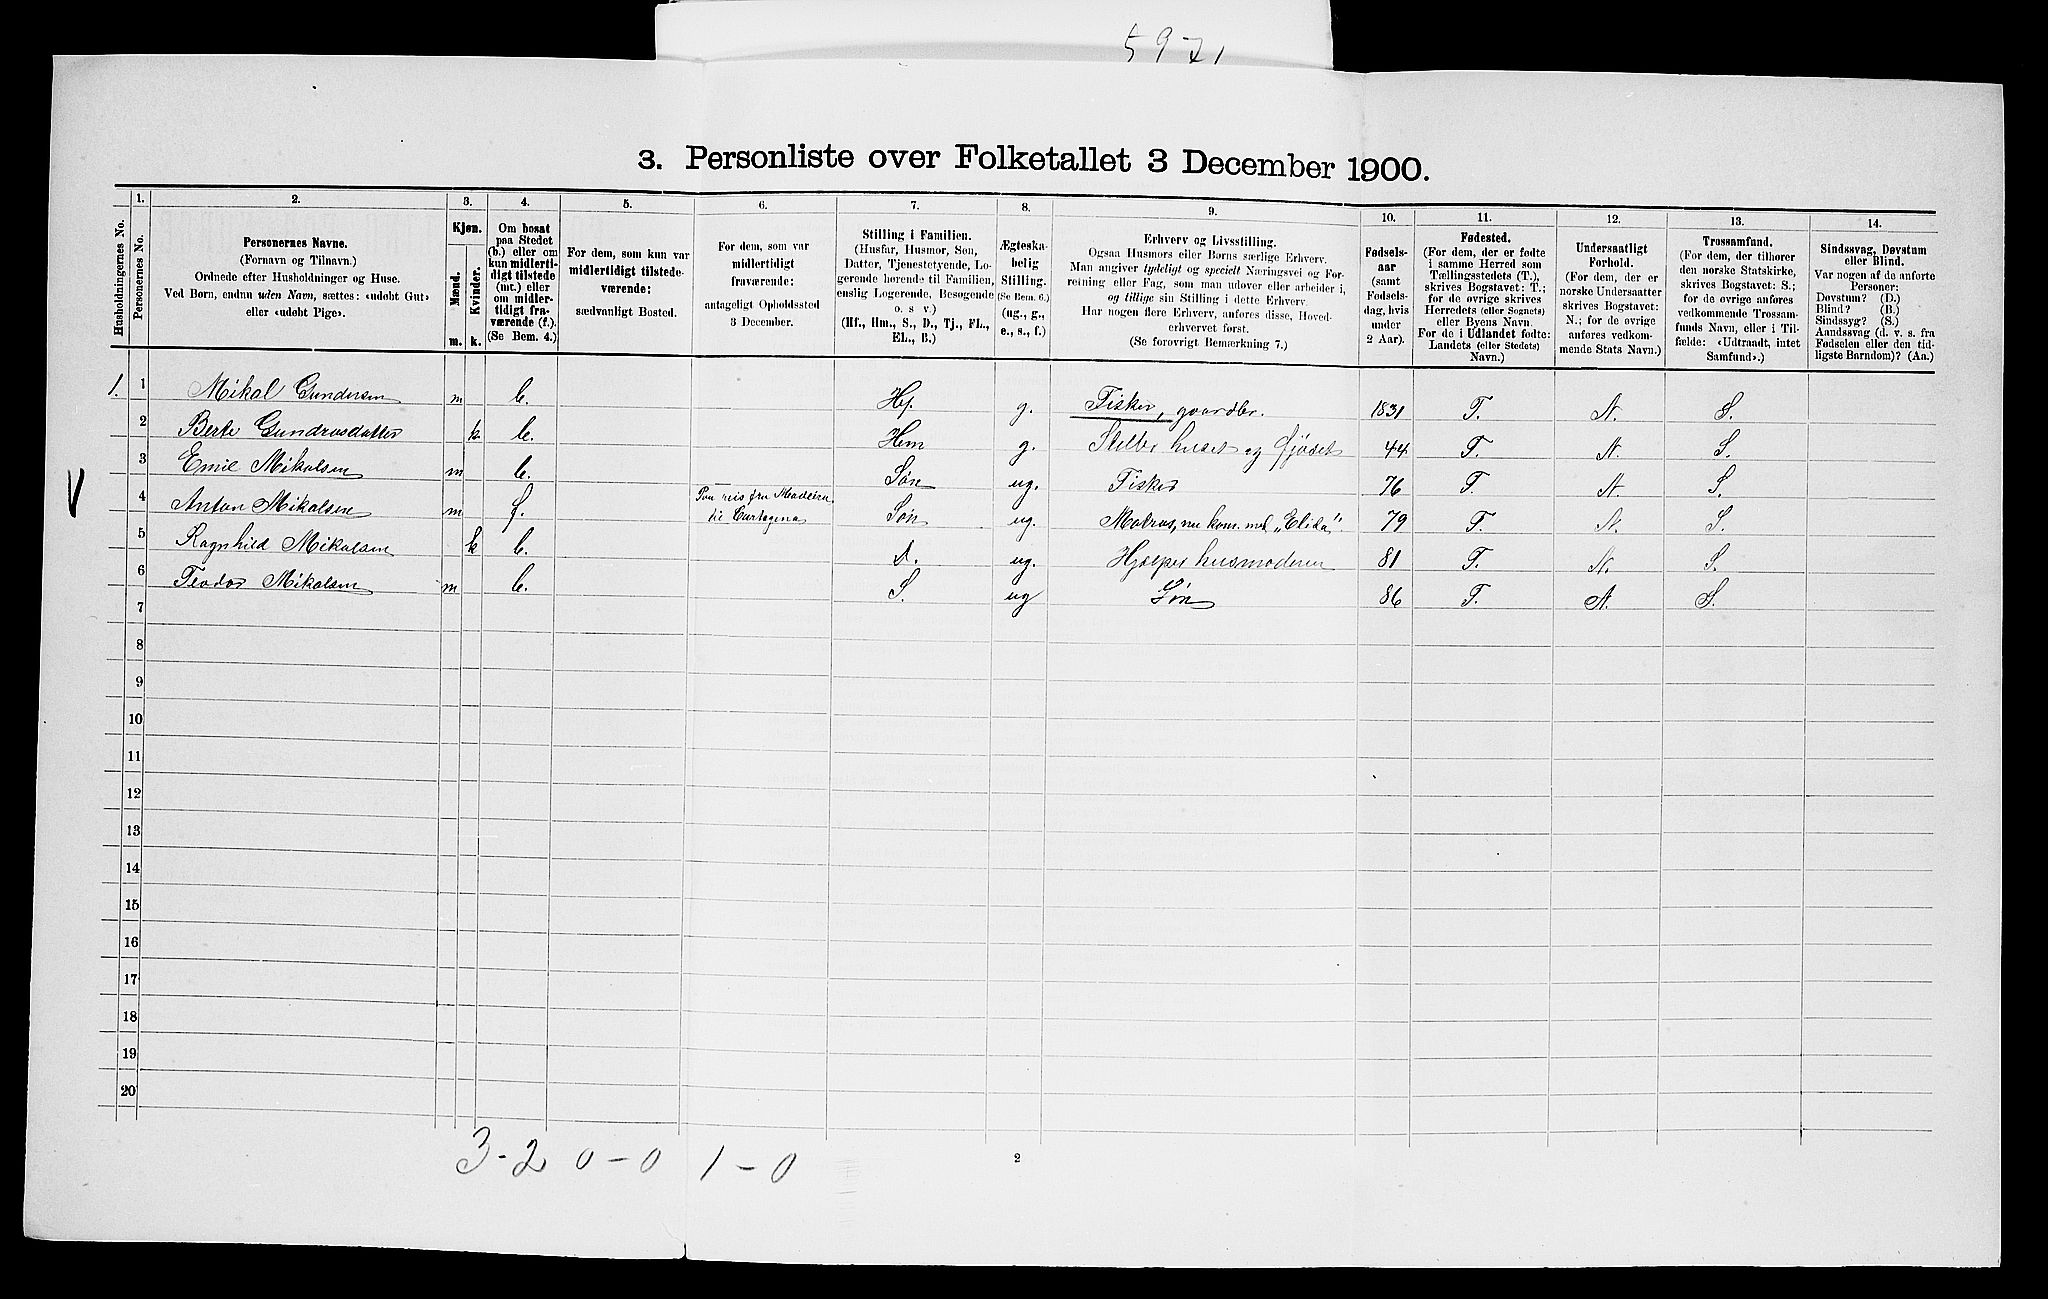 5971
3. Personliste over Folketallet 3 December 1900.
Husholdningernes No.
1.
Personernes No.
2.
Personernes Navne.
(Fornavn og Tilnavn.)
Ordnede efter Husholdninger og Huse.
Ved Børn, endnu uden Navn, sættes: «udøbt Gut»
eller «udøbt Pige».
3.
Kjøn.
Mænd.
Kvinder.
m. k.
4.
Om bosat
paa Stedet
(b.) eller om
kun midlerti-
digt tilstede
(mt.) eller
om midler-
tidigt fra-
værende (f.).
(Se Bem. 4.)
5.
For dem, som kun var
midlertidigt tilstede-
værende:
sædvanligt Bosted.
6.
For dem, som var
midlertidigt
fraværende:
antageligt Opholdssted
3 December.
7.
Stilling i Familien.
(Husfar, Husmor, Søn,
Datter, Tjenestetyende, Lo-
gerende hørende til Familien,
enslig Logerende, Besøgende
o. s. v.)
(Hf., Hm., S., D., Tj., FL.,
EL., B.)
8.
Ægteska-
belig
Stilling.
(Se Bem. 6.)
(ug., g.,
e., s., f.)
9.
Erhverv og Livsstilling.
Ogsaa Husmors eller Børns særlige Erhverv.
Man angiver tydeligt og specielt Næringsvei og For-
retning eller Fag, som man udøver eller arbeider i,
og tillige sin Stilling i dette Erhverv.
Har nogen flere Erhverv, anføres disse, Hoved-
erhvervet først.
(Se forøvrigt Bemærkning 7.)
10.
Fødsels-
aar
(samt
Fødsels-
dag, hvis
under
2 Aar).
11.
Fødested.
(For dem, der er fødte
i samme Herred som
Tællingsstedets (T.),
skrives Bogstavet: T.;
for de øvrige skrives
Herredets (eller Sognets)
eller Byens Navn.
For de i Udlandet fødte:
Landets (eller Stedets)
Navn.)
12.
Undersaatligt
Forhold.
(For dem, der er
norske Undersaatter
skrives Bogstavet:
N.; for de øvrige
anføres vedkom-
mende Stats Navn.)
13.
Trossamfund.
(For dem, der tilhører
den norske Statskirke,
skrives Bogstavet: S.;
for de øvrige anføres
vedkommende Trossam-
funds Navn, eller i Til-
fælde: «Udtraadt, intet
Samfund».)
14.
Sindssvag, Døvstum
eller Blind.
Var nogen af de anførte
Personer:
Døvstum? (D.)
Blind? (B.)
Sindssyg? (S.)
Aandssvag (d. v. s. fra
Fødselen eller den tid-
ligste Barndom)? (Aa.)
1. 1 Mikal Gundersen m b. Hf. g. Fisker, gaardbr. 1831 T. N. S.
2 Berte Gundrosdatter k. b. Hm g. Steller huset og fjøset 44 T. N. S.
3 Emil Mikalsen m b. Søn ug. Fisker 76 T. N. S.
4 Anton Mikalsen m f. Paa reis fra Madeira til Cartagena Søn ug. Matros, nu kom. med „Elida". 79 T. N. S.
5 Ragnhild Mikalsen k b. d. ug. Hjælper husmoderen 81 T. N. S.
6 Teodor Mikalsen m b. S. ug Søn 86 T. N. S.
7
8
9
10
11
12
13
14
15
16
17
18
19
20
3-2 0-0 1-0
2